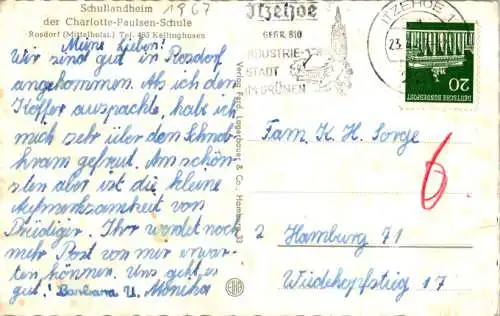 Schullandheim 1967
der Charlotte-Paulsen-Schule
Rosdorf (Mittelholst.) Tel. 485 Kellinghusen
Meine Lieben!
Wir sind gut in Rosdorf
angekommen. Als ich den
Koffer auspackte, hab ich
mich sehr über den Schnek
kram gefreut. Am schön-
sten aber ist die kleine
Aufmerksamkeit von
Rüdiger. Ihr werdet noch
mehr Post von mir erwar-
ten können. Uns geht es
gut! Barbara u. Monika
Verlag Ferd. Lagerbauer & Co., Hamburg 33
Itzehoe
GEGR. 810
INDUSTRIE-
STADT
IM GRÜNEN
ITZEHOE 1
23.
DEUTSCHE BUNDESPOST
20
Fam. K. H. Sorge
6
2 Hamburg 71
Wiedehopfstieg 17